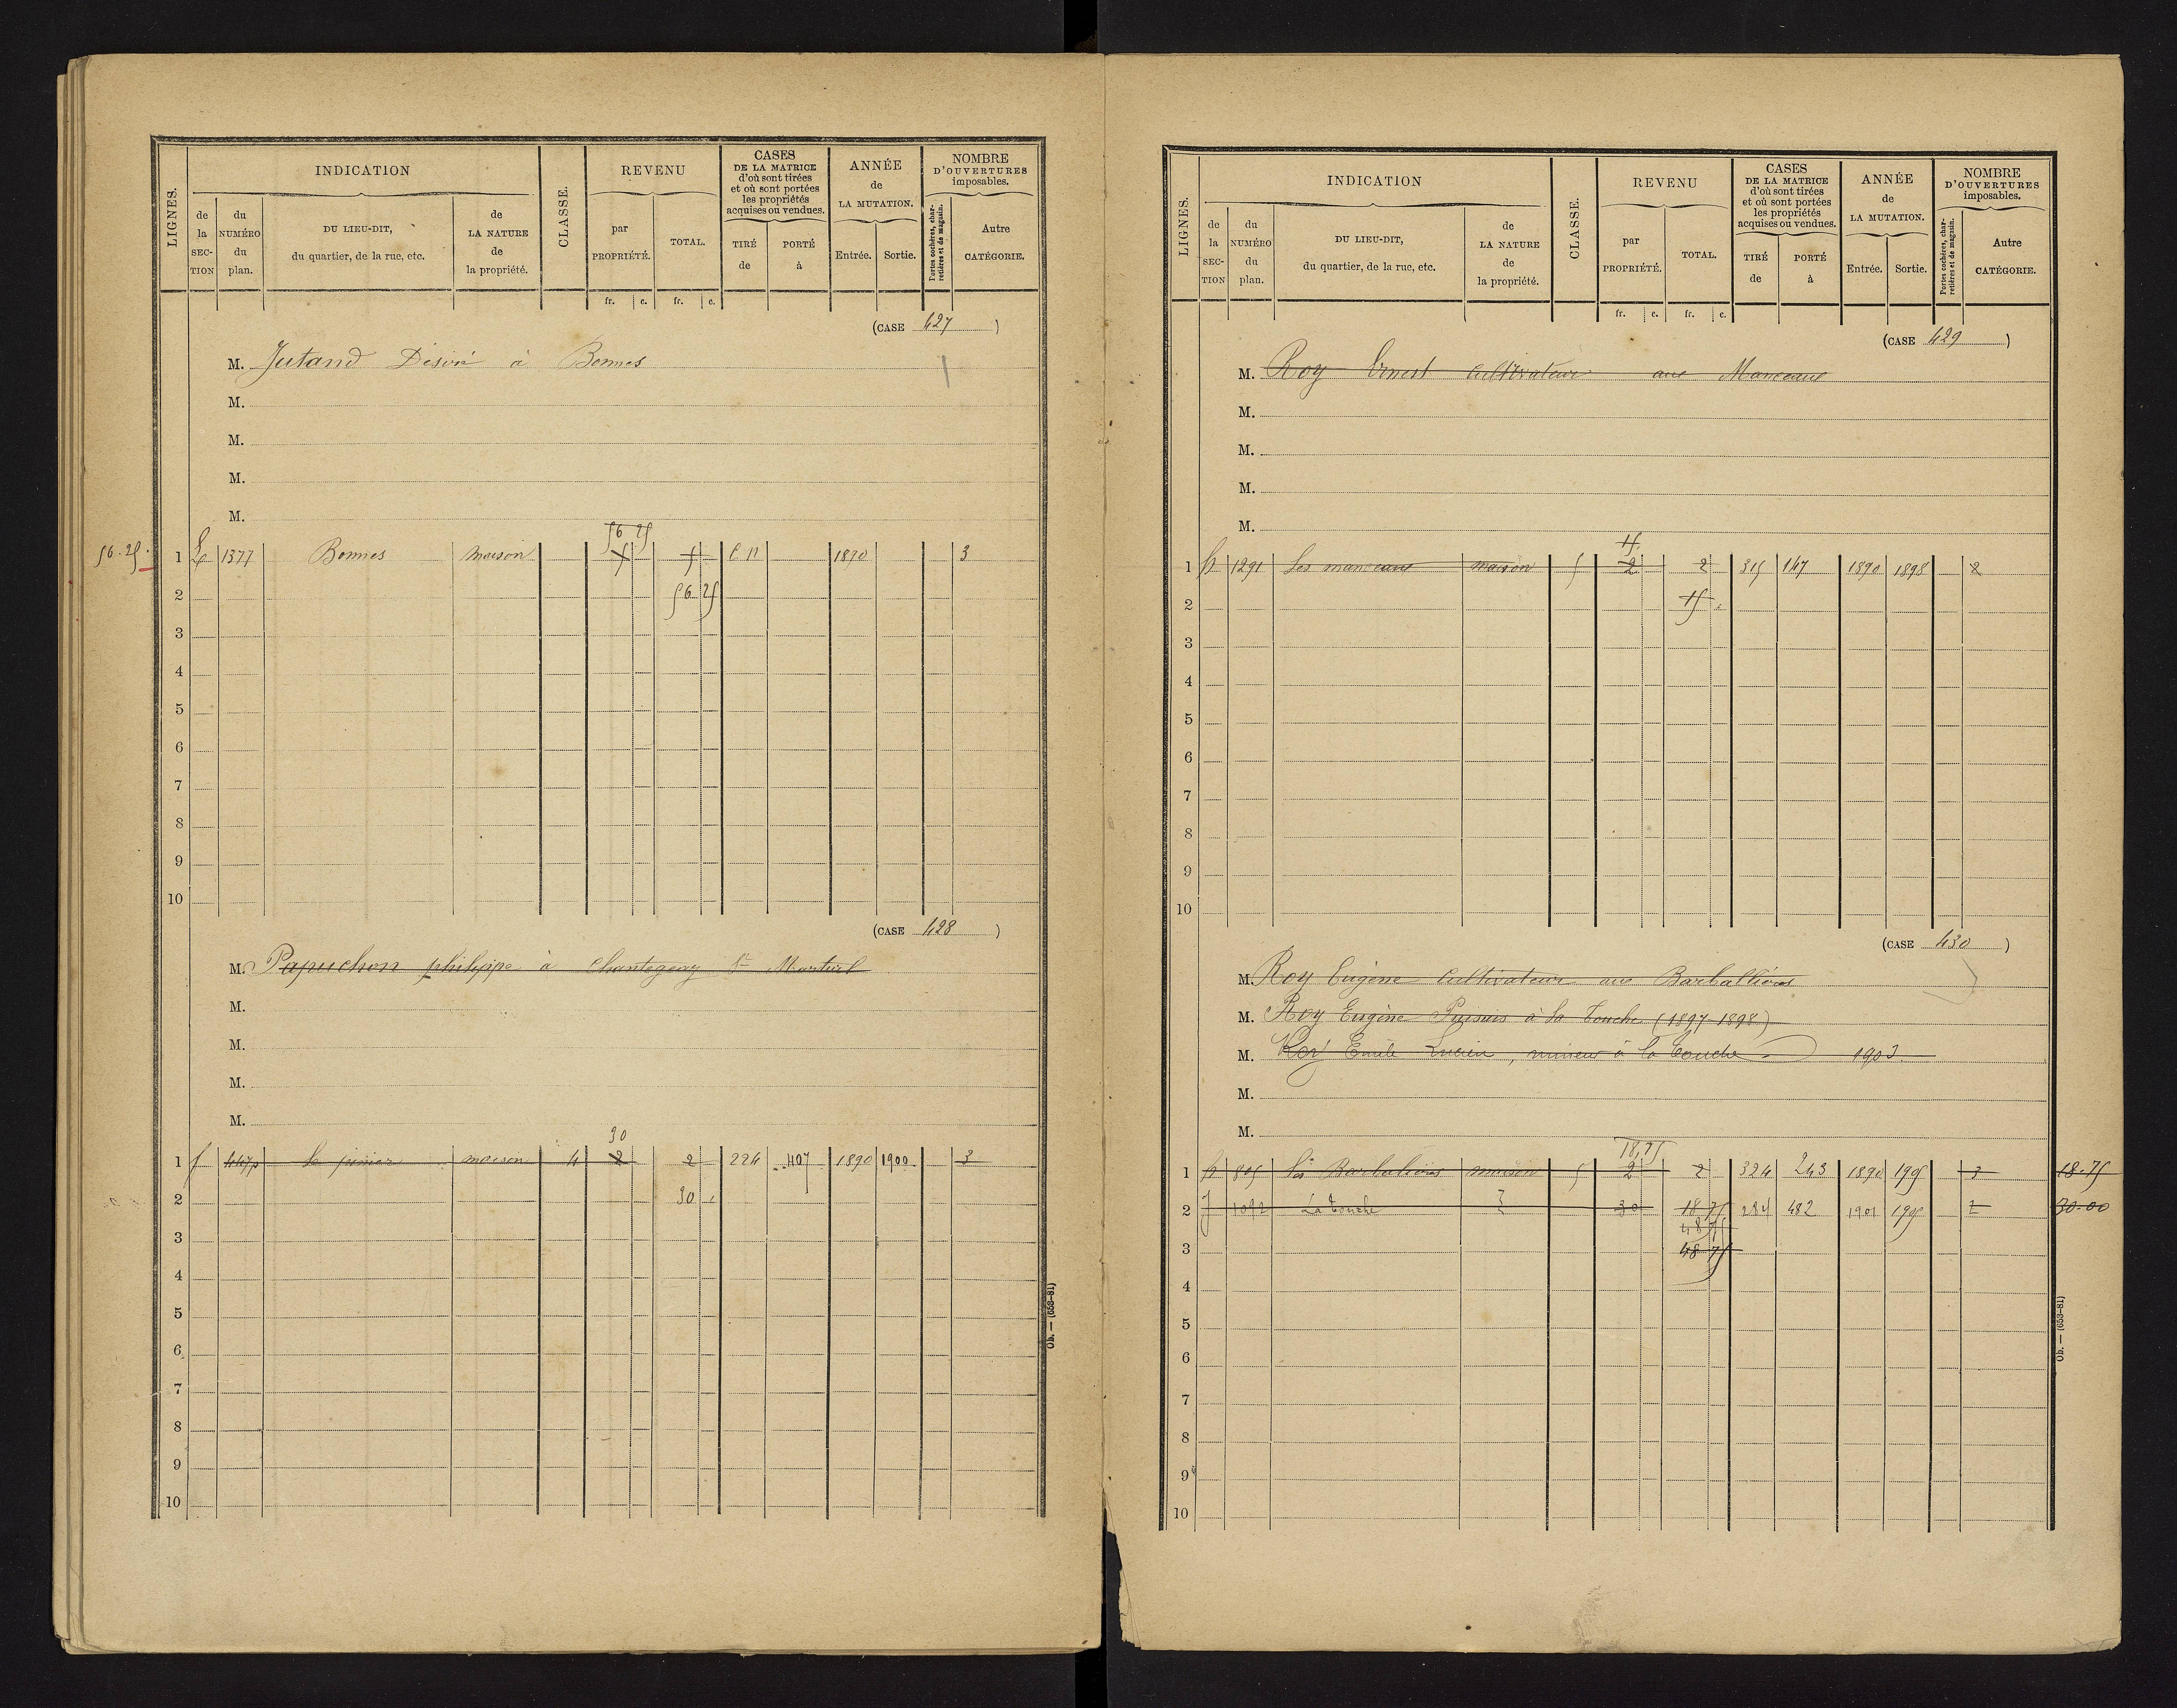 LIGNES.
INDICATION
de la SECTION
du NUMÉRO du plan.
DU LIEU-DIT, du quartier, de la rue, etc.
de LA NATURE de la propriété.
CLASSE.
REVENU
par PROPRIÉTÉ.
TOTAL.
fr. c. fr. c.
CASES DE LA MATRICE d'où sont tirées et où sont portées les propriétés acquises ou vendues.
TIRÉ de
PORTÉ à
ANNÉE de LA MUTATION.
Entrée. Sortie.
NOMBRE D'OUVERTURES imposables.
Portes cochères, charretières et de magasin.
Autre CATÉGORIE.
(CASE 427)
M. Jutand Désiré à Bonnes
M.
M.
M.
M.
56 25
56.25. 1 1377 Bonnes maison 5 5 C N 1890 3
2 56 25
3
4
5
6
7
8
9
10
(CASE 428)
M. Papuchon philippe à Chantegeay St Martial
M.
M.
M.
M.
30
1 f 447p maison 4 2 2 224 407 1890 1900 3
2 30
3
4
5
6
7
8
9
10
Ob. — (653-81)
LIGNES.
INDICATION
de la SECTION
du NUMÉRO du plan.
DU LIEU-DIT, du quartier, de la rue, etc.
de LA NATURE de la propriété.
CLASSE.
REVENU
par PROPRIÉTÉ.
TOTAL.
fr. c. fr. c.
CASES DE LA MATRICE d'où sont tirées et où sont portées les propriétés acquises ou vendues.
TIRÉ de
PORTÉ à
ANNÉE de LA MUTATION.
Entrée. Sortie.
NOMBRE D'OUVERTURES imposables.
Portes cochères, charretières et de magasin.
Autre CATÉGORIE.
(CASE 429)
M. Roy Ernest Cultivateur aux Manceaux
M.
M.
M.
M.
15.
1 h 1291 Les manceaux maison 5 2 2 315 147 1890 1898 2
2 15
3
4
5
6
7
8
9
10
(CASE 430)
M. Roy Eugène Cultivateur aux Barballières
M. Roy Eugène à la Touche (1897-1898)
M. Roy Emile Lucien, mineur à la Touche 1903
M.
M.
18,75
1 h 805 Les Barbalières maison 5 2 2 324 243 1890 1905 3 18.75
2 J 1092 La Touche 30 18 75 284 482 1901 1905 2 30.00
48 75
3 48 75
4
5
6
7
8
9
10
Ob. — (653-81)